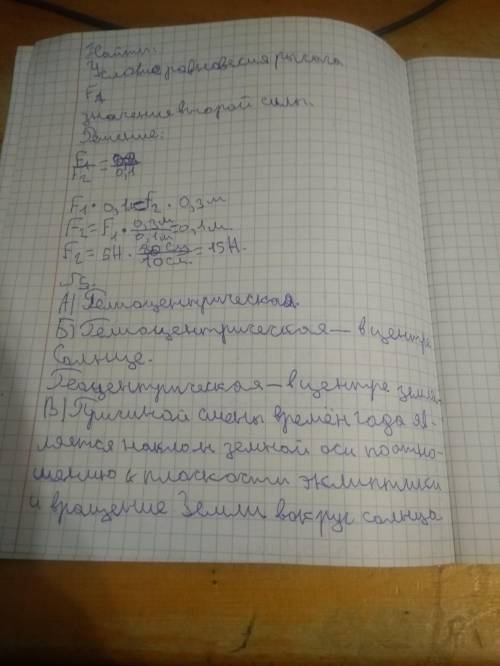 Найти:
Условие равновесия рычага
F₂
значение второй силы.
Решение:
F1/F2 = 0,1
F1 · 0,1м = F2 · 0,3м
F2 = F1 · 0,3м/0,1м = 0,1м.
F2 = 5Н · 30см/10см = 15Н.
№5.
А) Гелиоцентрическая.
Б) Гелиоцентрическая — в центре
Солнце.
Геоцентрическая — в центре земля.
В) Причиной смены времён года яв-
ляется наклон земной оси по отно-
шению к плоскости эклиптики
и вращение Земли вокруг солнца